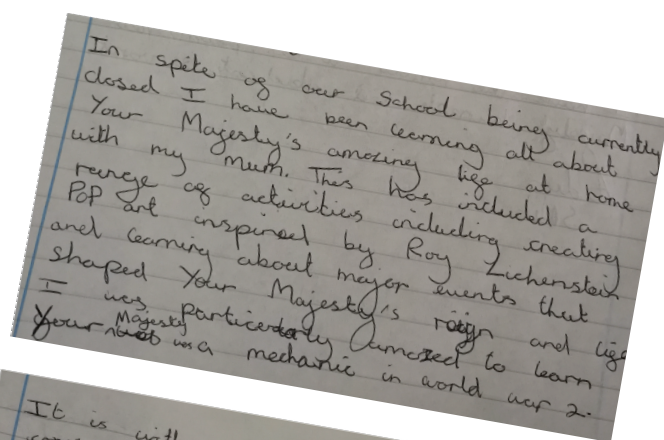 In spite of our School being currently
closed I have been learning all about
Your Majesty's amazing life at home
with my mum. This has included a
range of activities including creating
Pop art inspired by Roy Lichenstein
and learning about major events that
shaped Your Majesty's reign and life
I was particularly amazed to learn
Your Majesty was a mechanic in world war 2.
It is with